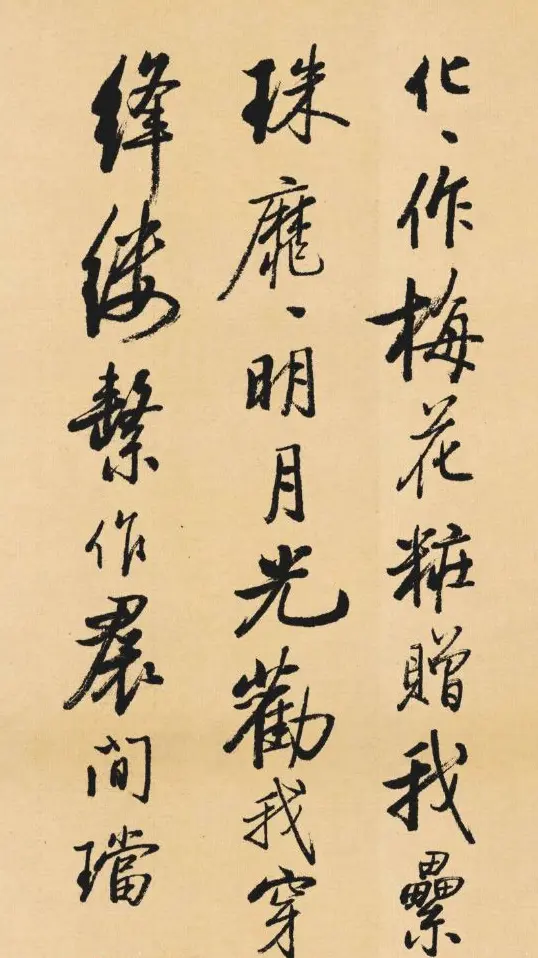 化、作梅花粧贈我纍
珠靡、明月光勸我穿
絳縷繫作裙間璫